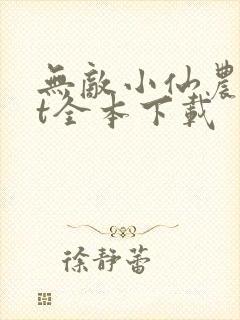 無敵小仙農
t全本下載
徐靜蕾